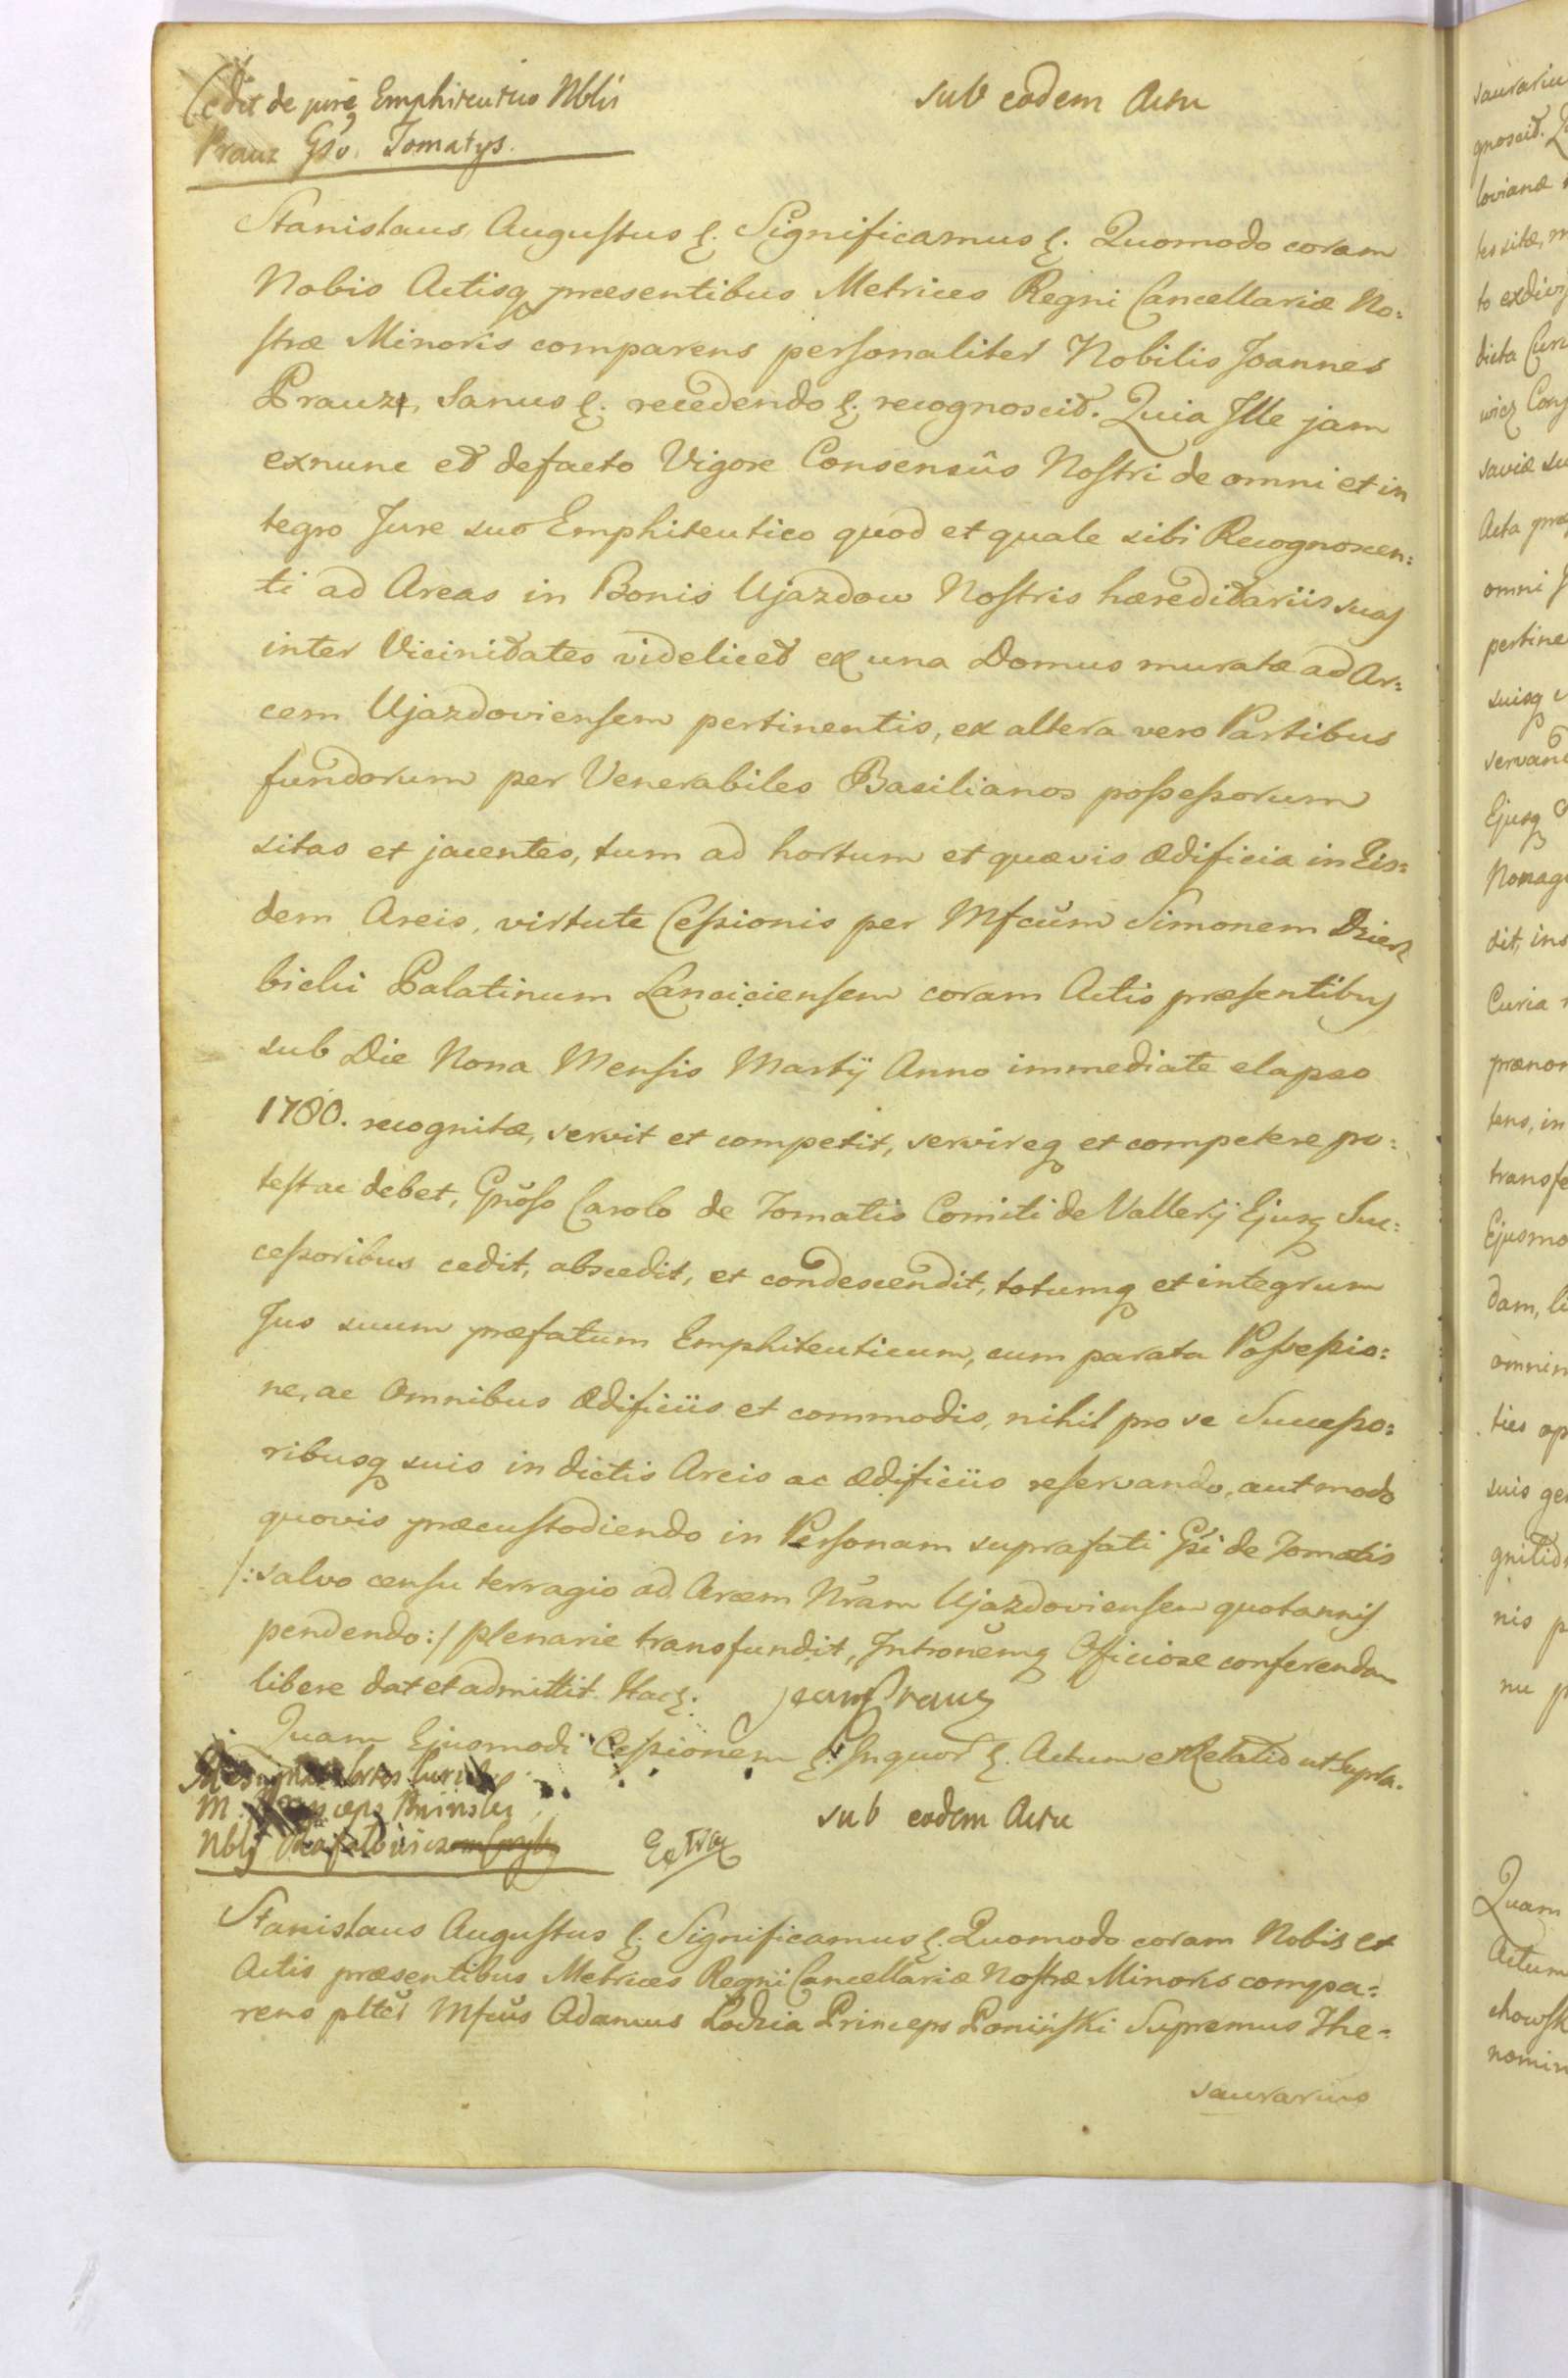 Cedit de jure Emphiteutico Nblis
Prauz Gso. Tomatys.
sub eodem Actu
Stanislaus Augustus &. Significamus &. Quomodo coram
Nobis Actisq præsentibus Metrices Regni Cancellariæ No=
stræ Minoris comparens personaliter Nobilis Joannes
Prauz, Sanus &. recedendo &. recognoscit. Quia Ille jam
exnunc et defacto Vigore Consensûs Nostri de omni et in
tegro Jure suo Emphiteutico quod et quale sibi Recognoscen=
ti ad Areas in Bonis Ujazdow Nostris hæreditariis suas
inter Vicinitates videlicet ex una Domus muratæ ad Ar=
cem Ujazdoviensem pertinentis, ex altera vero Partibus
fundorum per Venerabiles Basilianos possessorum
sitas et jacentes, tum ad hortum et quævis Ædificia in Eis=
dem Areis, virtute Cessionis per Mfcum Simonem Dzierz
bicki Palatinum Lanciciensem coram Actis præsentibus
sub Die Nona Mensis Martij Anno immediate elapso
1780. recognitæ, servit et competit, servireq et competere po=
test ac debet, Gnoso Carolo de Tomatis Comiti de Vallerij Ejusq Suc=
cessoribus cedit, abscedit, et condescendit, totumq et integrum
Jus suum præfatum Emphiteuticum, cum parata Possessio=
ne, ac Omnibus Ædificiis et commodis, nihil pro se Successo=
ribusq suis in dictis Areis ac Ædificiis reservando, aut modo
quovis præcustodiendo in Personam suprafati Gsi de Tomatis
/: salvo censu terragio ad Arcem Nram Ujazdoviensem quotannis
pendendo :/ plenarie transfundit, Intronemq Officiose conferendam
libere dat et admittit. Hac &. Jean Prauz
Quam Ejusmodi Cessionem &. In quor &. Actum et Relatio ut Supra.
sub eodem Actu
Nblj
Stanislaus Augustus &. Significamus &. Quomodo coram Nobis et
Actis præsentibus Metrices Regni Cancellariæ Nostræ Minoris compa=
rens plter Mfcus Adamus Lodzia Princeps Poniński Supremus The=
saurarius